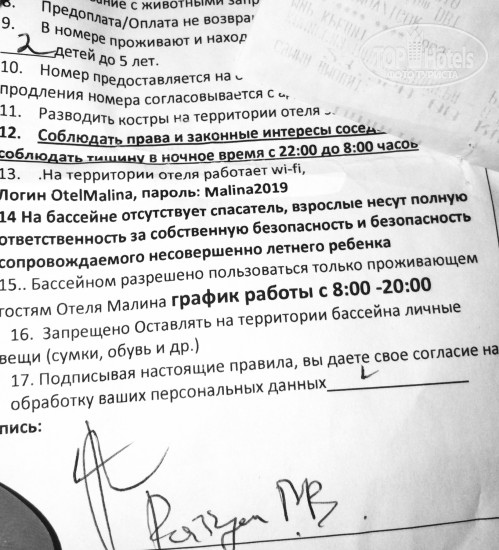 TOP Hotels
ФОТО ТУРИСТА
8. с животными запр
Предоплата/Оплата не возвра
9. В номере проживают и наход
2 детей до 5 лет.
10. Номер предоставляется на с
продления номера согласовывается с
11. Разводить костры на территории отеля
12. Соблюдать права и законные интересы сосед
соблюдать тишину в ночное время с 22:00 до 8:00 часов
13. .На территории отеля работает wi-fi,
Логин OtelMalina, пароль: Malina2019
14 На бассейне отсутствует спасатель, взрослые несут полную
ответственность за собственную безопасность и безопасность
сопровождаемого несовершенно летнего ребенка
15.. Бассейном разрешено пользоваться только проживающем
гостям Отеля Малина график работы с 8:00 -20:00
16. Запрещено Оставлять на территории бассейна личные
вещи (сумки, обувь и др.)
17. Подписывая настоящие правила, вы даете свое согласие на
обработку ваших персональных данных
пись: